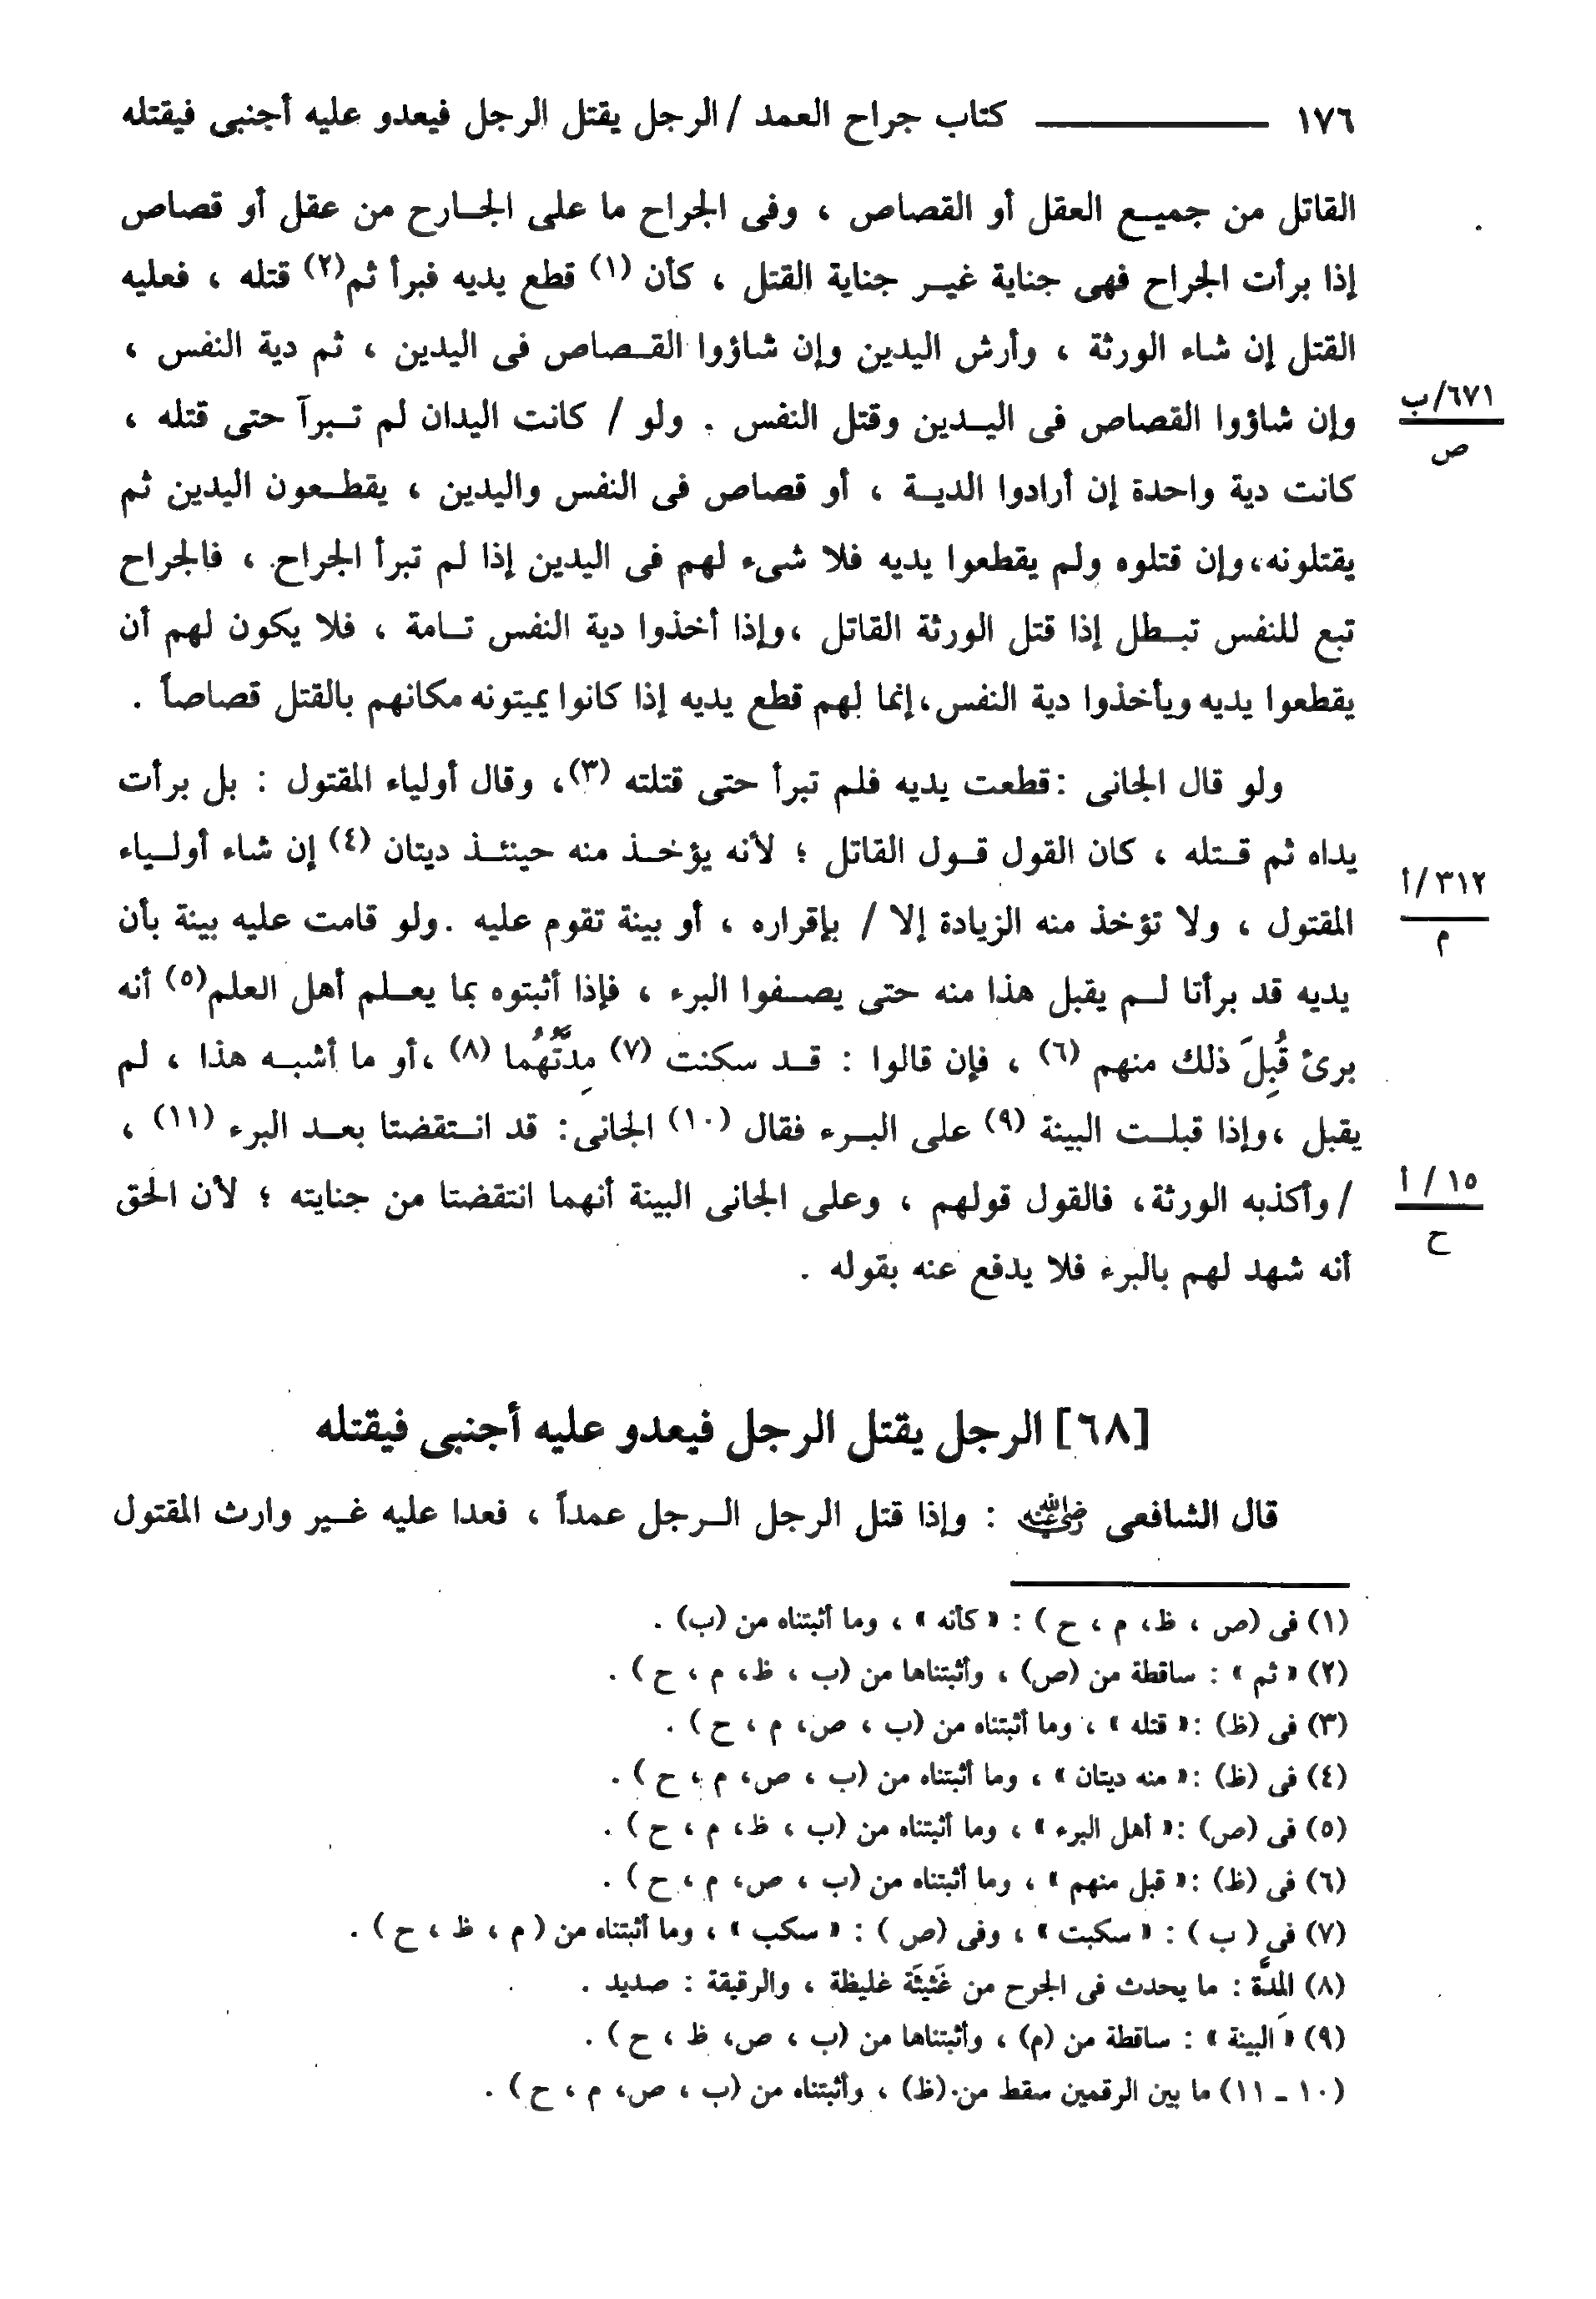 ١٧٦ ــــــــــــ كتاب جراح العمد / الرجل يقتل الرجل فيعدو عليه أجنبى فيقتله
القاتل من جميع العقل أو القصاص ، وفى الجراح ما على الجارح من عقل أو قصاص
إذا برأت الجراح فهى جناية غير جناية القتل ، كأن (١) قطع يديه فبرأ ثم(٢) قتله ، فعليه
القتل إن شاء الورثة ، وأرش اليدين وإن شاؤوا القصاص فى اليدين ، ثم دية النفس ،
وإن شاؤوا القصاص فى اليدين وقتل النفس . ولو / كانت اليدان لم تبرآ حتى قتله ،
٦٧١/ب
ص
كانت دية واحدة إن أرادوا الدية ، أو قصاص فى النفس واليدين ، يقطعون اليدين ثم
يقتلونه،وإن قتلوه ولم يقطعوا يديه فلا شىء لهم فى اليدين إذا لم تبرأ الجراح ، فالجراح
تبع للنفس تبطل إذا قتل الورثة القاتل ،وإذا أخذوا دية النفس تامة ، فلا يكون لهم أن
يقطعوا يديه ويأخذوا دية النفس،إنما لهم قطع يديه إذا كانوا يميتونه مكانهم بالقتل قصاصاً .
ولو قال الجانى :قطعت يديه فلم تبرأ حتى قتلته (٣)، وقال أولياء المقتول : بل برأت
يداه ثم قتله ، كان القول قول القاتل ؛ لأنه يؤخذ منه حينئذ ديتان (٤) إن شاء أولياء
المقتول ، ولا تؤخذ منه الزيادة إلا / بإقراره ، أو بينة تقوم عليه .ولو قامت عليه بينة بأن
٣١٢/أ
م
يديه قد برأتا لم يقبل هذا منه حتى يصفوا البرء ، فإذا أثبتوه بما يعلم أهل العلم(٥) أنه
برئ قُبِلَ ذلك منهم (٦) ، فإن قالوا : قد سكنت (٧) مِدَّتُهُما (٨) ،أو ما أشبه هذا ، لم
يقبل ،وإذا قبلت البينة (٩) على البرء فقال (١٠) الجانى: قد انتقضتا بعد البرء (١١) ،
/ وأكذبه الورثة، فالقول قولهم ، وعلى الجانى البينة أنهما انتقضتا من جنايته ؛ لأن الحق
١٥ / أ
ح
أنه شهد لهم بالبرء فلا يدفع عنه بقوله .
[٦٨] الرجل يقتل الرجل فيعدو عليه أجنبى فيقتله
قال الشافعى رضي الله عنه : وإذا قتل الرجل الرجل عمداً ، فعدا عليه غير وارث المقتول
(١) فى (ص ، ظ، م ، ح ) : « كأنه » ، وما أثبتناه من (ب) .
(٢) « ثم » : ساقطة من (ص) ، وأثبتناها من (ب ، ظ، م ، ح ) .
(٣) فى (ظ) :« قتله » ، وما أثبتناه من (ب ، ص، م ، ح ) .
(٤) فى (ظ) :« منه ديتان » ، وما أثبتناه من (ب ، ص، م ، ح ) .
(٥) فى (ص) :« أهل البرء » ، وما أثبتناه من (ب ، ظ، م ، ح ) .
(٦) فى (ظ) :« قبل منهم » ، وما أثبتناه من (ب ، ص، م ، ح ) .
(٧) فى ( ب ) : « سكبت » ، وفى (ص ) : « سكب » ، وما أثبتناه من ( م ، ظ ، ح ) .
(٨) المِدَّة : ما يحدث فى الجرح من غَثِيثَة غليظة ، والرقيقة : صديد .
(٩) « البينة » : ساقطة من (م) ، وأثبتناها من (ب ، ص، ظ ، ح ) .
(١٠ ـ ١١) ما بين الرقمين سقط من (ظ) ، وأثبتناه من (ب ، ص، م ، ح ) .